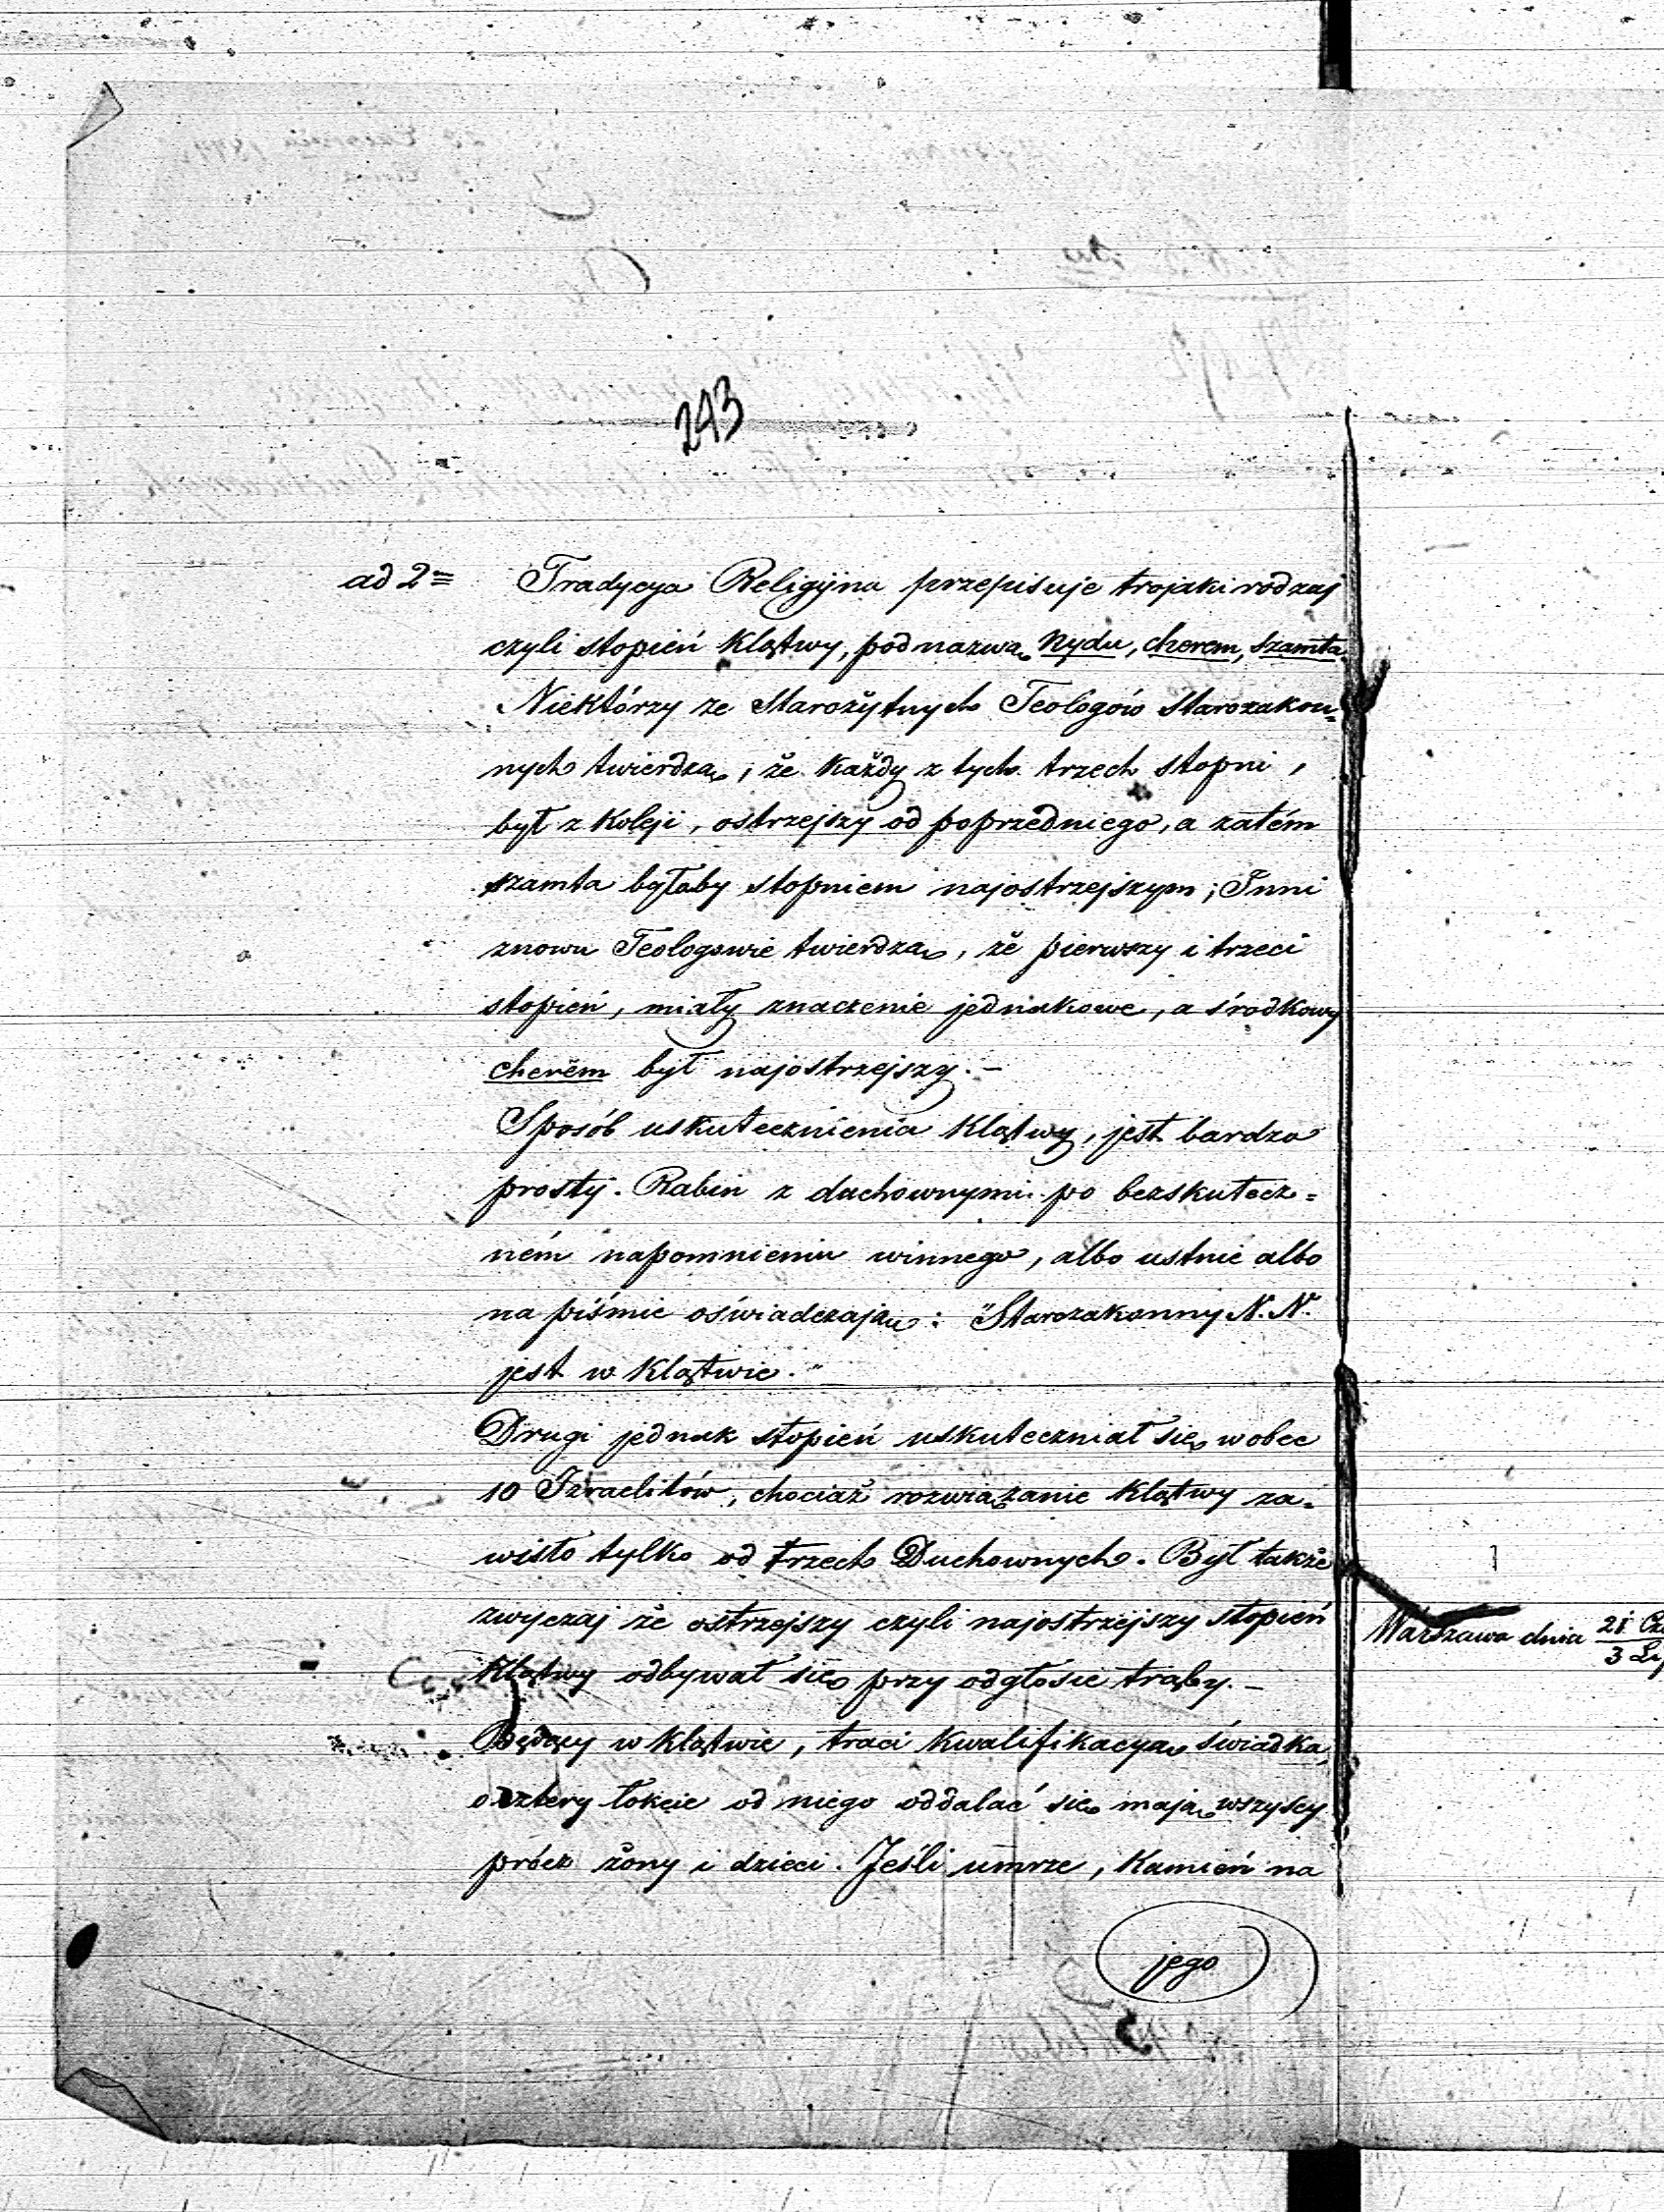 243
ad 2
Tradycya Religijna przepisuje trojaki rodzaj
czyli stopień klątwy, pod nazwą Nydu, cherem, szamta.
Niektórzy ze Starożytnych Teologów Starozakon=
nych twierdzą, że każdy z tych trzech stopni,
był z koleji, ostrzejszy od poprzedniego, a zatém
szamta byłaby stopniem najostrzejszym; Inni
znowu Teologowie twierdzą, że pierwszy i trzeci
stopień, miały znaczenie jednakowe, a środkowy
cherem był najostrzejszy. –
Sposób uskutecznienia klątwy, jest bardzo
prosty. Rabin z duchownymi po bezskutecz=
ném napomnieniu winnego, albo ustnie albo
na piśmie oświadczają: "Starozakonny N. N.
jest w klątwie."
Drugi jednak stopień uskuteczniał się wobec
10 Izraelitów, chociaż rozwiązanie klątwy za=
wisło tylko od trzech Duchownych. Był także
zwyczaj że ostrzejszy czyli najostrzejszy stopień
klątwy odbywał się przy odgłosie trąby. –
Będący w klątwie, traci kwalifikacyą świadka,
o cztery łokcie od niego oddalać się mają wszyscy
prócz żony i dzieci. Jeśli umrze, kamień na
jego
Warszawa dnia 21
3